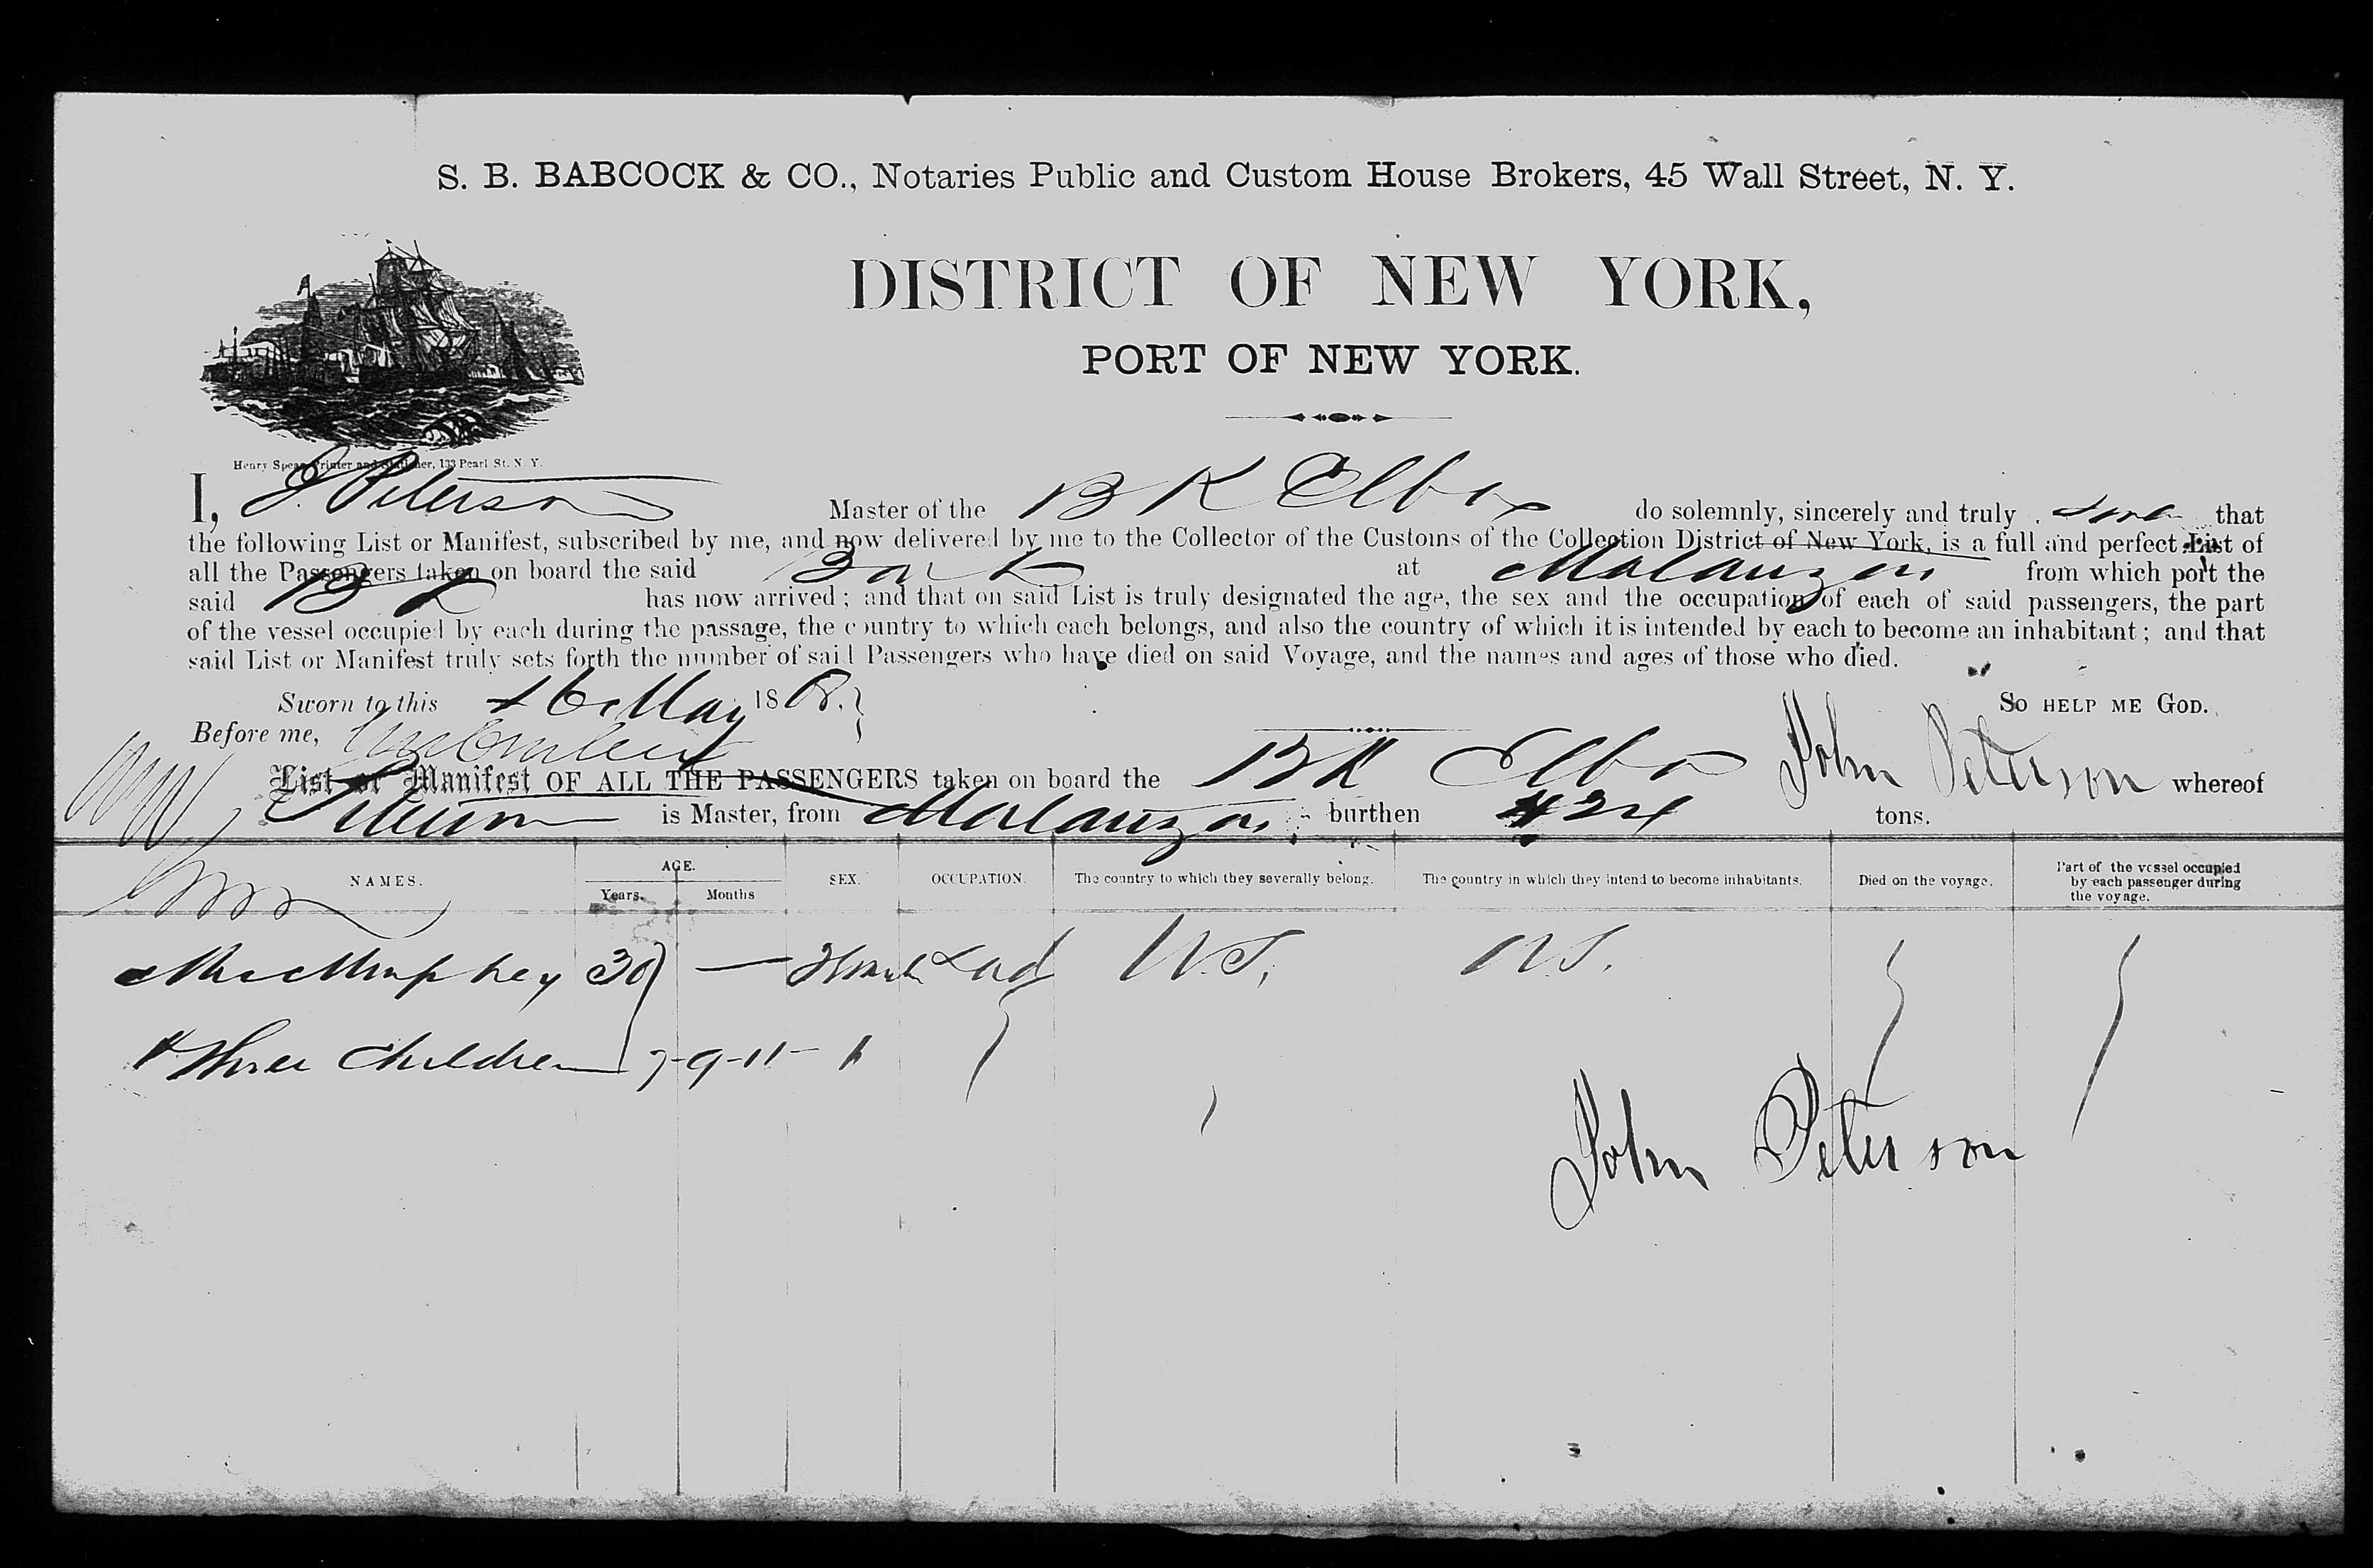 S. B. BABCOCK & CO., Notaries Public and Custom House Brokers, 45 Wall Street, N. Y.
DISTRICT OF NEW YORK,
PORT OF NEW YORK.
Henry Spear, Printer and Stationer, 133 Pearl St. N. Y.
I, J. Peterson Master of the Bk Elba do solemnly, sincerely and truly swear that
the following List or Manifest, subscribed by me, and now delivered by me to the Collector of the Customs of the Collection District of New York, is a full and perfect List of
all the Passengers taken on board the said Bark at Matanzas from which port the
said Bk has now arrived; and that on said List is truly designated the age, the sex and the occupation of each of said passengers, the part
of the vessel occupied by each during the passage, the country to which each belongs, and also the country of which it is intended by each to become an inhabitant; and that
said List or Manifest truly sets forth the number of said Passengers who have died on said Voyage, and the names and ages of those who died.
Sworn to this May 18 So HELP ME GOD.
Before me, John Peterson
List or Manifest OF ALL THE PASSENGERS taken on board the Bk Elba whereof
Peterson is Master, from Matanzas burthen 424 tons.
NAMES. AGE. Years. Months SEX. OCCUPATION. The country to which they severally belong. The country in which they intend to become inhabitants. Died on the voyage. Part of the vessel occupied by each passenger during the voyage.
Mrs Murphey 30 — Lady U.S. U.S.
& three children 7-9-11-
John Peterson